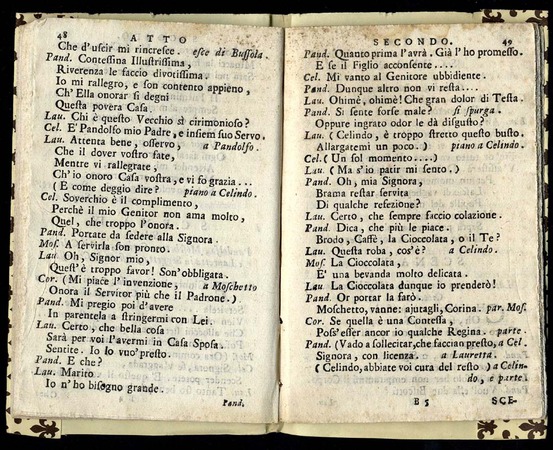 48 ATTO
Che d'uscir mi rincresce. esce di Bussola.
Pand. Contessina Illustrissima,
Riverenza le faccio divotissima.
Io mi rallegro, e son contento appieno,
Ch'Ella onorar si degni
Questa povera Casa.
Lau. Chi è questo Vecchio sì cirimonioso?
Cel. E' Pandolfo mio Padre, e insiem suo Servo.
Lau. Attenta bene, osservo, a Pandolfo.
Che il dover vostro fate,
Mentre vi rallegrate,
Ch'io onoro Casa vostra, e vi fo grazia...
(E come deggio dire? piano a Celindo.
Cel. Soverchio è il complimento,
Perchè il mio Genitor non ama molto,
Quel, che troppo l'onora.
Pand. Portate da sedere alla Signora.
Mos. A servirla son pronto.
Lau. Oh, Signor mio,
Quest'è troppo favor! Son'obbligata.
Cor. (Mi piace l'invenzione, a Moschetto
Onora il Servitor più che il Padrone.)
Pand. Mi pregio poi d'avere
In parentela a stringermi con Lei.
Lau. Certo, che bella cosa
Sarà per voi l'avermi in Casa Sposa.
Sentite. Io lo vuo' presto.
Pand. E che?
Lau. Marito
Io n'ho bisogno grande.
Pand.
SECONDO. 49
Pand. Quanto prima l'avrà. Già l'ho promesso.
E se il Figlio acconsente....
Cel. Mi vanto al Genitore ubbidiente.
Pand. Dunque altro non vi resta....
Lau. Ohimè, ohimè! Che gran dolor di Testa.
Pand. Si sente forse male? si spurga.
Oppure ingrato odor le dà disgusto?
Lau. (Celindo, è troppo stretto questo busto.
Allargatemi un poco.) piano a Celindo.
Cel. (Un sol momento....)
Lau. (Ma s'io patir mi sento.)
Pand. Oh, mia Signora,
Brama restar servita
Di qualche refezione?
Lau. Certo, che sempre faccio colazione.
Pand. Dica, che più le piace.
Brodo, Caffè, la Cioccolata, o il Te?
Lau. Questa roba, cos'è? a Celindo.
Mos. La Cioccolata,
E' una bevanda molto delicata.
Lau. La Cioccolata dunque io prenderò!
Pand. Or portar la farò.
Moschetto, vanne: ajutagli, Corina. par. Mos.
Cor. Se quella è una Contessa,
Poss'esser ancor io qualche Regina. parte.
Pand. (Vado a sollecitar, che faccian presto, a Cel.
Signora, con licenza. a Lauretta.
(Celindo, abbiate voi cura del resto) a Celin-
do, e parte.
B 5 SCE-